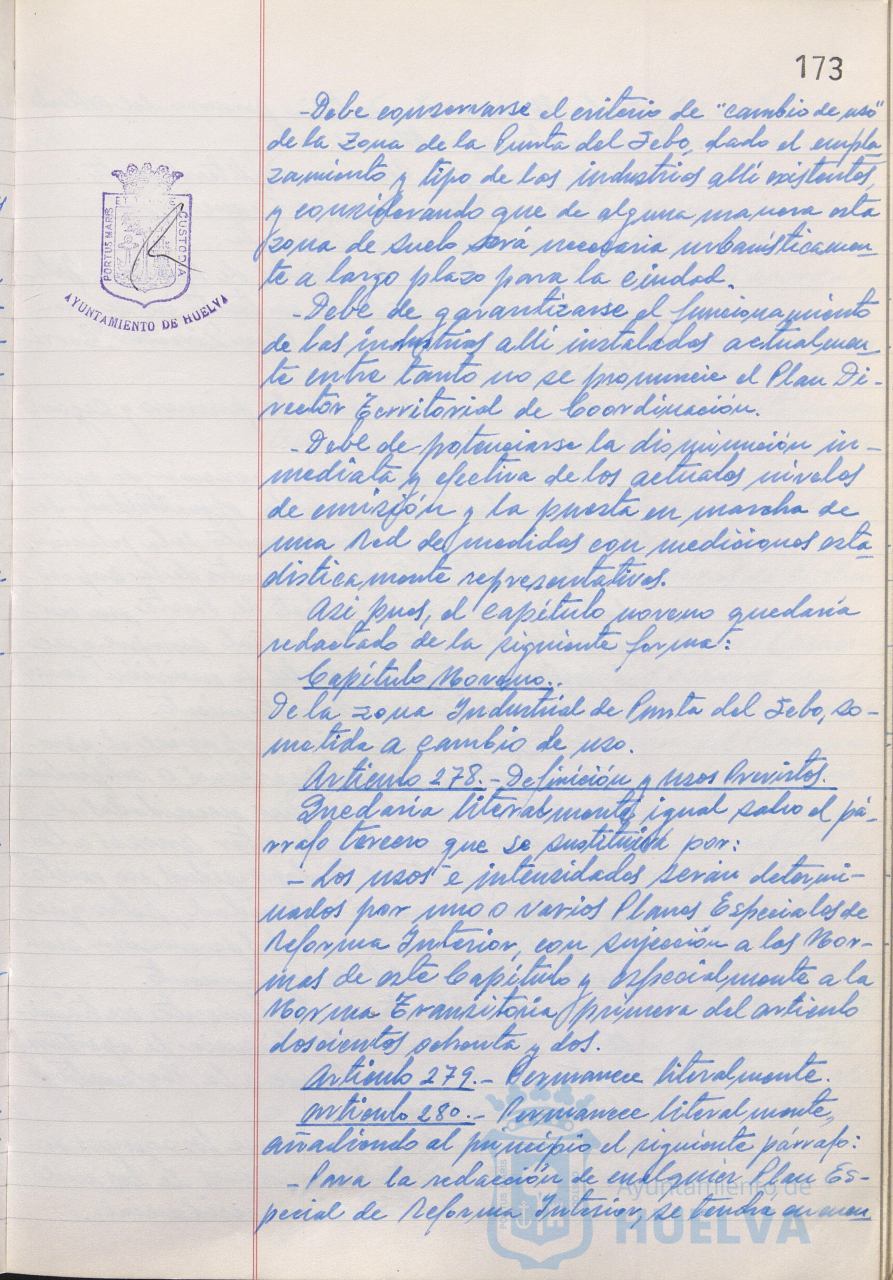 173
-Debe conservarse el criterio de "cambio de uso"
de la Zona de la Punta del Sebo, dado el empla
zamiento y tipo de las industrias allí existentes,
y considerando que de alguna manera esta
zona de suelo será necesaria urbanísticamen
te a largo plazo para la ciudad.
-Debe de garantizarse el funcionamiento
de las industrias allí instaladas actualmen
te entre tanto no se pronuncie el Plan Di-
rector Territorial de Coordinación.
-Debe de potenciarse la disminución in-
mediata y efectiva de los actuales niveles
de emisión y la puesta en marcha de
una Red de medidas con mediciones esta
disticamente representativas.
Asi pues, el capítulo noveno quedaría
redactado de la siguiente forma:
Capítulo Noveno..
De la zona Industrial de Punta del Sebo, so-
metida a cambio de uso.
Articulo 278.- Definición y usos Previstos.
Quedaría literalmente igual salvo el pá-
rrafo tercero que se sustituirá por:
- Los usos e intensidades serán determi-
nados por uno o varios Planes Especiales de
Reforma Interior, con sujección a las Nor-
mas de este Capítulo y especialmente a la
Norma Transitoria primera del articulo
doscientos ochenta y dos.
Articulo 279.- Permanece literalmente.
Articulo 280.- Permanece literalmente,
añadiendo al principio el siguiente párrafo:
-Para la redacción de cualquier Plan Es-
pecial de Reforma Interior, se tendrá en cuen
PORTUS MARIS
CUSTODIA
AYUNTAMIENTO DE HUELVA
Ayuntamiento de
HUELVA